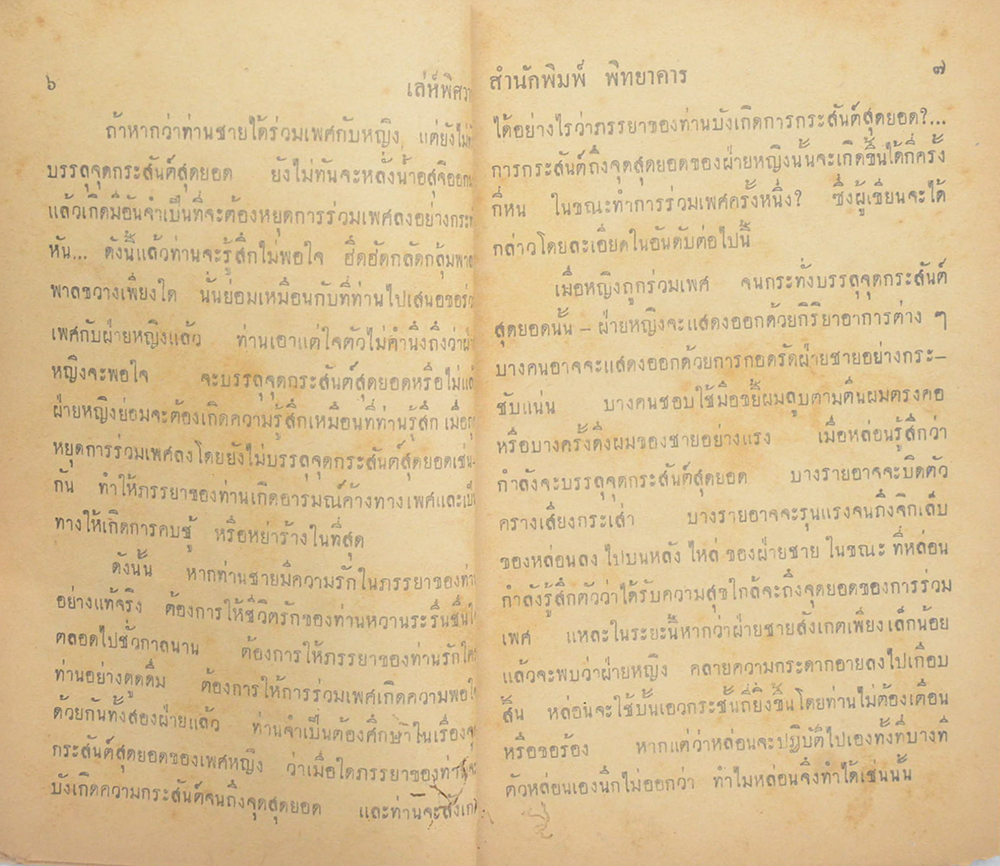 ๖
เล่ห์พิศวา
ถ้าหากว่าท่านชายได้ร่วมเพศกับหญิง แต่ยังไม่
บรรลุจุดกระสันต์สุดยอด ยังไม่ทันจะหลั่งน้ำอสุจิออก
แล้วเกิดมีอันจำเป็นที่จะต้องหยุดการร่วมเพศลงอย่างกระ
หัน... ดังนี้แล้วท่านจะรู้สึกไม่พอใจ ฮึดฮัดกลัดกลุ้มพา
พาลขวางเพียงใด นั่นย่อมเหมือนกับที่ท่านไปเสนอขอร่
เพศกับฝ่ายหญิงแล้ว ท่านเอาแต่ใจตัวไม่คำนึงถึงว่า
หญิงจะพอใจ จะบรรลุจุดกระสันต์สุดยอดหรือไม่
ฝ่ายหญิงย่อมจะต้องเกิดความรู้สึกเหมือนที่ท่านรู้สึก เมื่อ
หยุดการร่วมเพศลงโดยยังไม่บรรลุจุดกระสันต์สุดยอดเช่น
กัน ทำให้ภรรยาของท่านเกิดอารมณ์ค้างทางเพศและ
ทางให้เกิดการคบชู้ หรือหย่าร้างในที่สุด
ดังนั้น หากท่านชายมีความรักในภรรยาของ
อย่างแท้จริง ต้องการให้ชีวิตรักของท่านหวานระรื่นชื่น
ตลอดไปชั่วกาลนาน ต้องการให้ภรรยาของท่านรัก
ท่านอย่างดูดดื่ม ต้องการให้การร่วมเพศเกิดความพอ
ด้วยกันทั้งสองฝ่ายแล้ว ท่านจำเป็นต้องศึกษาในเรื่อง
กระสันต์สุดยอดของเพศหญิง ว่าเมื่อใดภรรยาของท่าน
บังเกิดความกระสันต์จนถึงจุดสุดยอด และท่านจะสังเก
สำนักพิมพ์ พิทยาคาร
๗
ได้อย่างไรว่าภรรยาของท่านบังเกิดการกระสันต์สุดยอด?...
การกระสันต์ถึงจุดสุดยอดของฝ่ายหญิงนั้นจะเกิดขึ้นได้กี่ครั้ง
กี่หน ในขณะทำการร่วมเพศครั้งหนึ่ง? ซึ่งผู้เขียนจะได้
กล่าวโดยละเอียดในอันดับต่อไปนี้
เมื่อหญิงถูกร่วมเพศ จนกระทั่งบรรลุจุดกระสันต์
สุดยอดนั้น – ฝ่ายหญิงจะแสดงออกด้วยกิริยาอาการต่าง ๆ
บางคนอาจจะแสดงออกด้วยการกอดรัดฝ่ายชายอย่างกระ–
ชับแน่น บางคนชอบใช้มือขยี้ผมลูบตามตีนผมตรงคอ
หรือบางครั้งดึงผมของชายอย่างแรง เมื่อหล่อนรู้สึกว่า
กำลังจะบรรลุจุดกระสันต์สุดยอด บางรายอาจจะบิดตัว
ครางเสียงกระเส่า บางรายอาจจะรุนแรงจนถึงจิกเล็บ
ของหล่อนลง ไปบนหลัง ไหล่ ของฝ่ายชาย ในขณะ ที่หล่อน
กำลังรู้สึกตัวว่าได้รับความสุขใกล้จะถึงจุดยอดของการร่วม
เพศ แหละในระยะนี้หากว่าฝ่ายชายสังเกตเพียงเล็กน้อย
แล้วจะพบว่าฝ่ายหญิง คลายความกระดากอายลงไปเกือบ
สิ้น หล่อนจะใช้บั้นเอวกระชั้นถี่ยิ่งขึ้นโดยท่านไม่ต้องเตือน
หรือขอร้อง หากแต่ว่าหล่อนจะปฏิบัติไปเองทั้งที่บางที
ตัวหล่อนเองนึกไม่ออกว่า ทำไมหล่อนจึงทำได้เช่นนั้น